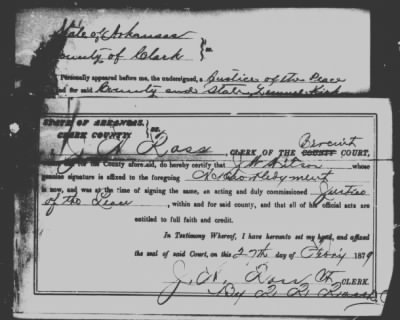 State of Arkansas
County of Clark } ss.
Personally appeared before me, the undersigned, a Justice of the Peace
and for said County and State, Lemuel
STATE OF ARKANSAS,
CLARK COUNTY. } ss.
J. W. Ross CLERK OF THE COUNTY Circuit COURT,
for the County aforesaid, do hereby certify that J. W. Wilson whose
genuine signature is affixed to the foregoing
is now, and was at the time of signing the same, an acting and duly commissioned Justice
of the Peace, within and for said county, and that all his official acts are
entitled to full faith and credit.
In Testimony Whereof, I have hereunto set my hand, and affixed
the seal of said Court, on this 27th day of Feb'y 1879
J. W. Ross Clk CLERK.
By Ross D C